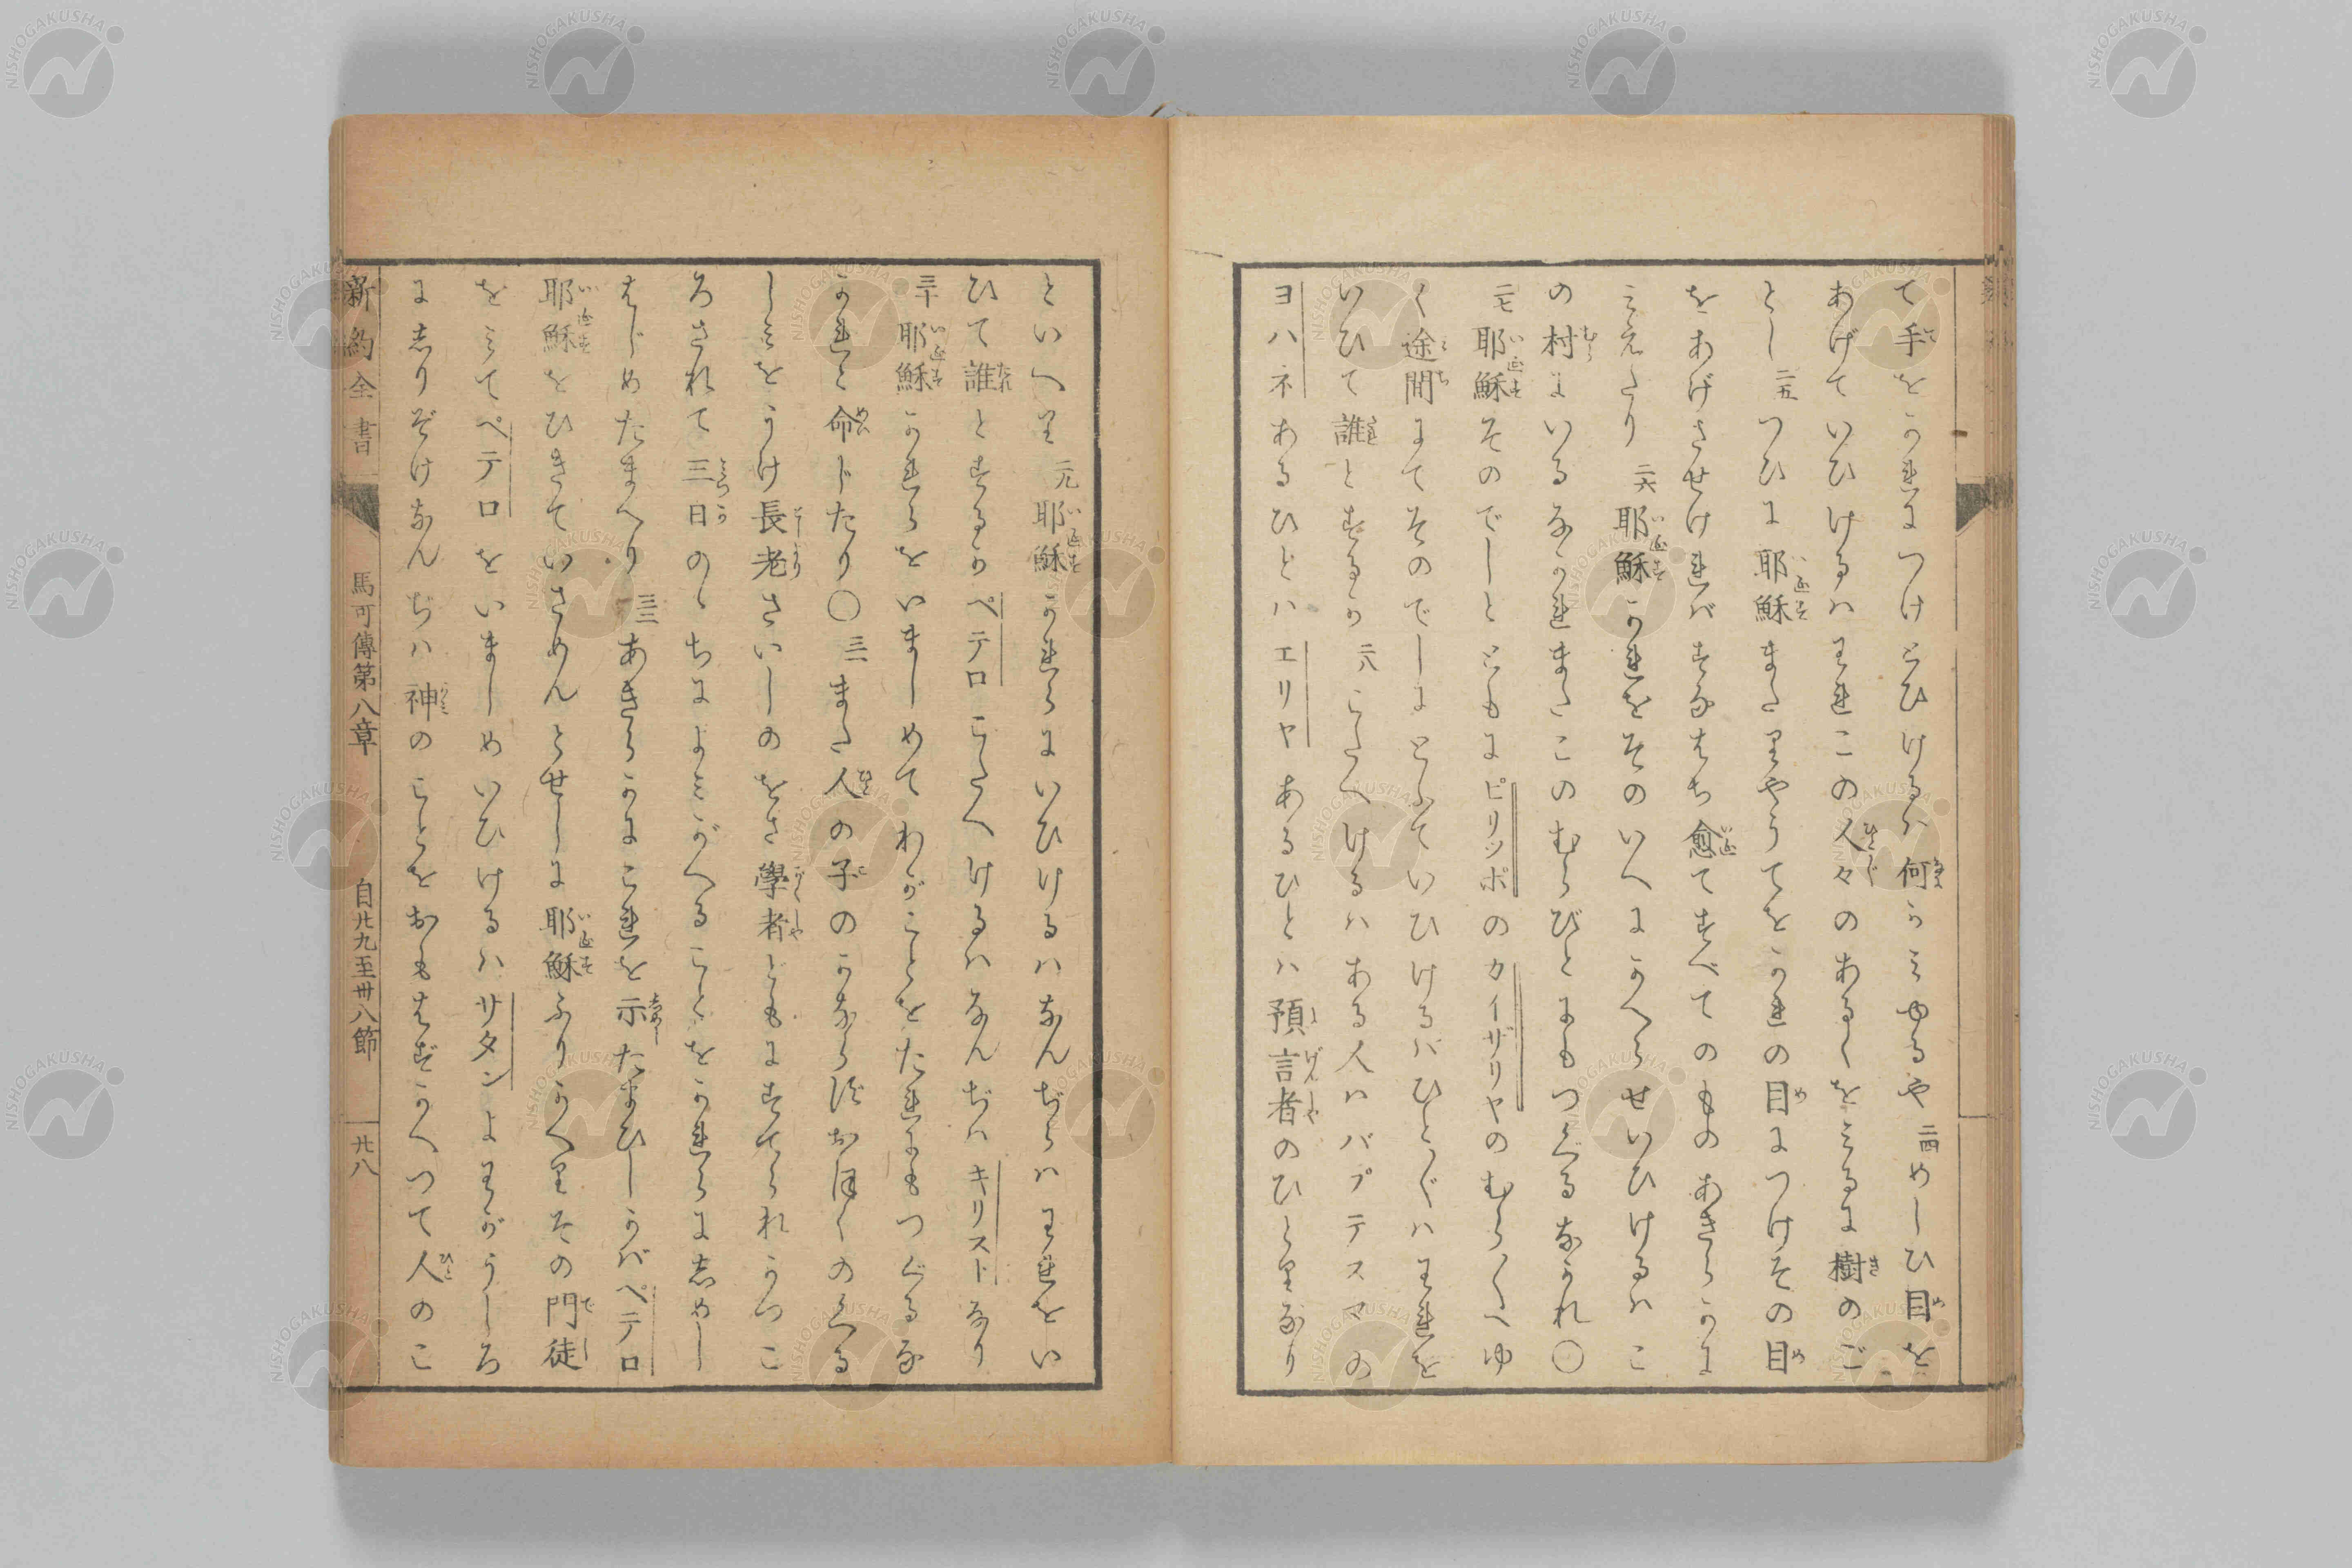 て手をかれにつけとひけるハ何かミゆるや 二四 めしひ目を
あげていひけるハわれこの人々のあるくをミるに樹のご
とし 二五 つひに耶穌またりやうてをかれの目につけその目
をあげさせければすなはち愈てすべてのものあきらかに
ミえたり 二六 耶穌かれをそのいへにかへらせいひけるハこ
の村にいるなかれまたこのむらびとにもつぐるなかれ〇
二七 耶穌そのでしとともにピリッポのカイザリヤのむら〳〵へゆ
く途間にてそのでしにとふていひけるハひと〴〵ハわれを
いひて誰とするか 二八 こたへけるハある人ハバプテスマの
ヨハネあるひとハエリヤあるひとハ預言者のひとりなり
といへり 二九 耶穌かれらにいひけるハなんぢらハわれをい
ひて誰とするかペテロこたへけるハなんぢハキリストなり
三十 耶穌かれらをいましめてわがことをたれにもつぐるな
かれと命じたり〇 三一 また人の子のかならずおほくのくる
しミをうけ長老さいしのをさ學者どもにすてられかつこ
ろされて三日のゝちによミがへることをかれらに志めし
はじめたまへり 三二 あきらかにこれを示たまひしかバペテロ
耶穌をひきていさめんとせしに 耶穌ふりかへりその門徒
をミてペテロをいましめいひけるハサタンよわがうしろ
に志りぞけなんぢハ神のことをおもはずかへつて人のこ
新約全書 馬可傳第八章 自廿九至卅八節 廿八